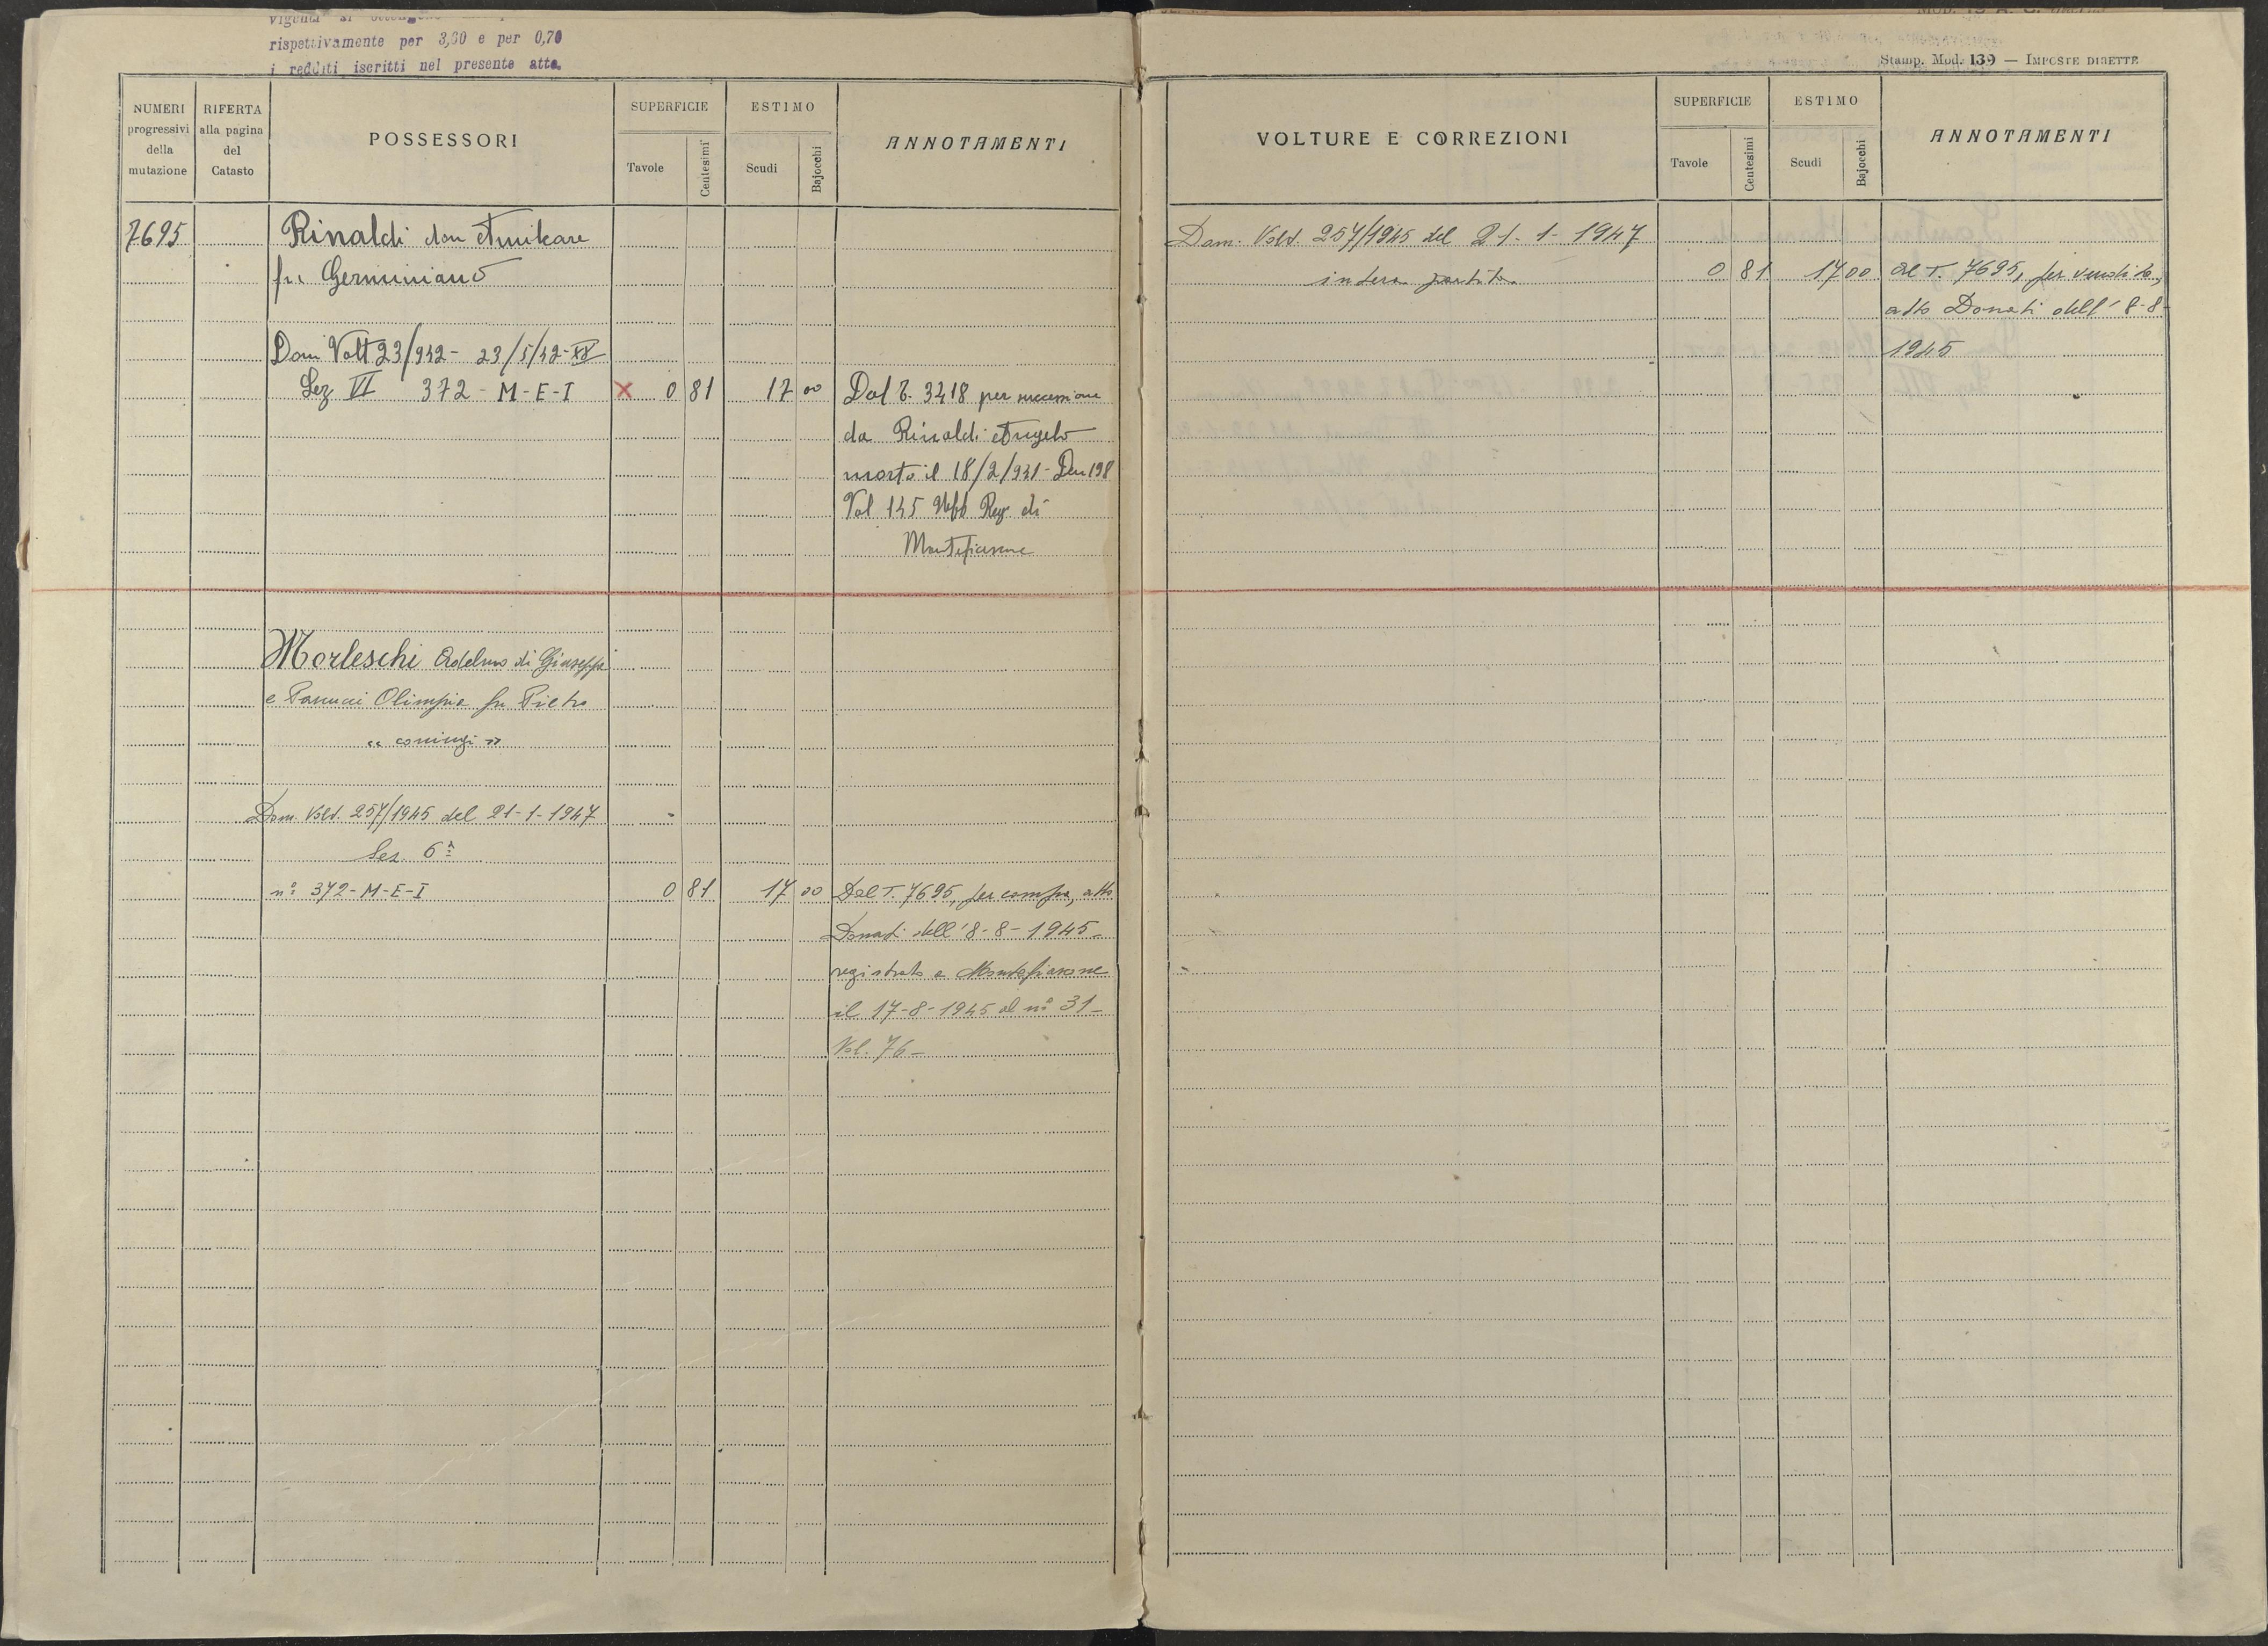 rispettivamente per 3,60 e per 0,70
i redditi iscritti nel presente atto.
Stamp. Mod. 139 — IMPOSTE DIRETTE
NUMERI progressivi della mutazione
RIFERTA alla pagina del Catasto
POSSESSORI
SUPERFICIE
Tavole
Centesimi
ESTIMO
Scudi
Bajocchi
ANNOTAMENTI
7695
Rinaldi don Amilcare
fu Germiniano
Dom Volt 23/942 - 23/5/42-XX
Sez VI 372 - M-E-I × 0 81 17 00 Dal T. 3418 per successione
da Rinaldi Angelo
morto il 18/2/941 - Den 198
Vol 145 Uff Reg. di
Montefiascone
Morleschi Adelmo di Giuseppe
e Panucci Olimpia fu Pietro
"coniugi"
Dom. Volt. 257/1945 del 21-1-1947
Sez. 6ª
nº 372-M-E-I 0 81 17 00 Dal T. 7695, per compra, atto
Donati dell'8-8-1945-
registrato a Montefiascone
il 17-8-1945 al nº 31-
Vol. 76-
VOLTURE E CORREZIONI
SUPERFICIE
Tavole
Centesimi
ESTIMO
Scudi
Bajocchi
ANNOTAMENTI
Dom. Volt. 257/1945 del 21-1-1947
intera partita 0 81 17 00 al T. 7695, per vendita,
atto Donati dell'8-8-
1945